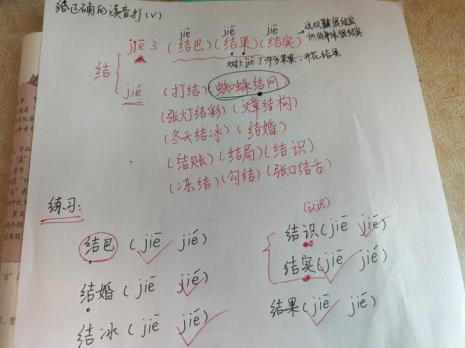 给正确的读音打(√)
jiē jiē jiē
jiē (结巴)(结果)(结实)
树上jiē了许多苹果,开花结果
结
jié (打结)(蜘蛛结网)
(张灯结彩)(结构)
(冬天结冰)(结婚)
(结账)(结局)(结识)
(冻结)(勾结)(张口结舌)
练习:
(认识)
结巴(jiē jié) 结识(jiē jié)
结婚(jiē jié) 结实(jiē jié)
结冰(jiē jié) 结果(jiē jié)